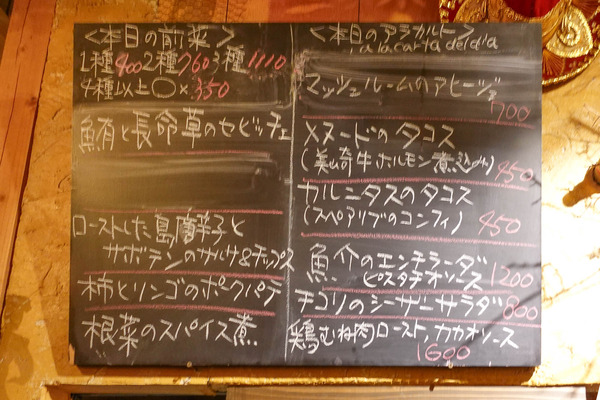 <本日の前菜>
1種400 2種760 3種1110
4種以上〇×350
鮪と長命草のセビッチェ
ローストした島唐辛子と
サボテンのサルサ&チップス
柿とリンゴのポークパテ
根菜のスパイス煮
<本日のアラカルト>
a la carta del dia
マッシュルームのアヒージョ
700
メヌードのタコス
(美山奇牛ホルモン煮込み) 450
カルニタスのタコス
(スペアリブのコンフィ) 450
魚介のエンチラーダ
ピスタチオソース 1200
チコリのシーザーサラダ 800
鶏むね肉ロースト,カカオソース
1600